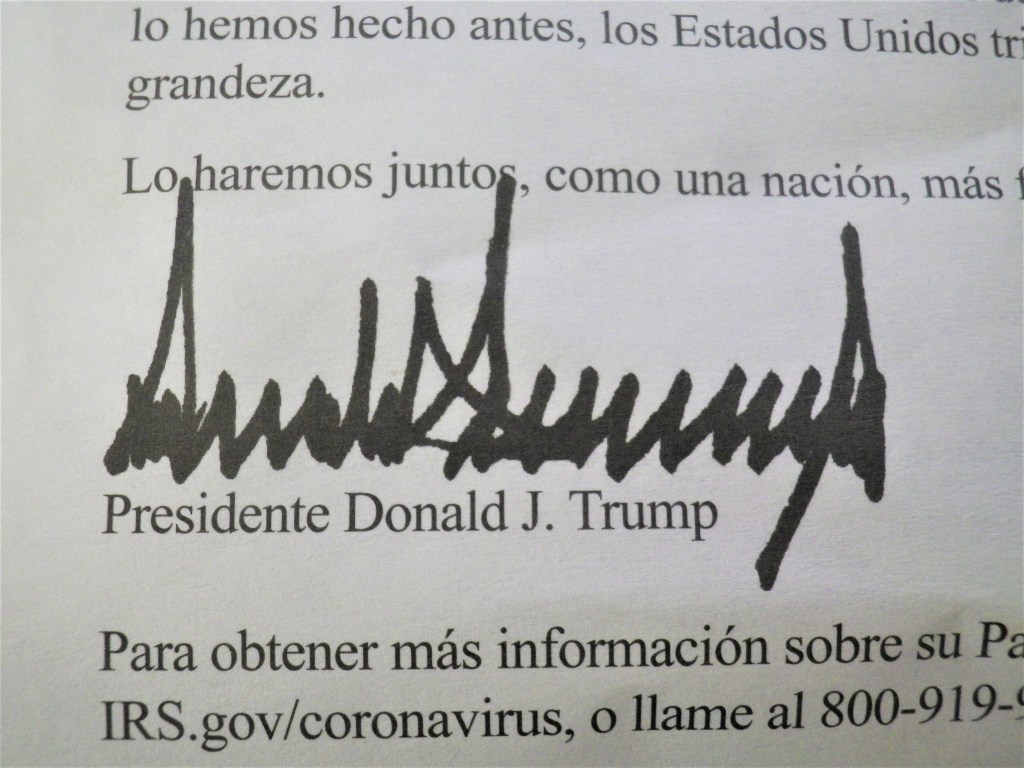 lo hemos hecho antes, los Estados Unidos
grandeza.
Lo haremos juntos, como una nación, más
Presidente Donald J. Trump
Para obtener más información sobre su
IRS.gov/coronavirus, o llame al 800-919-